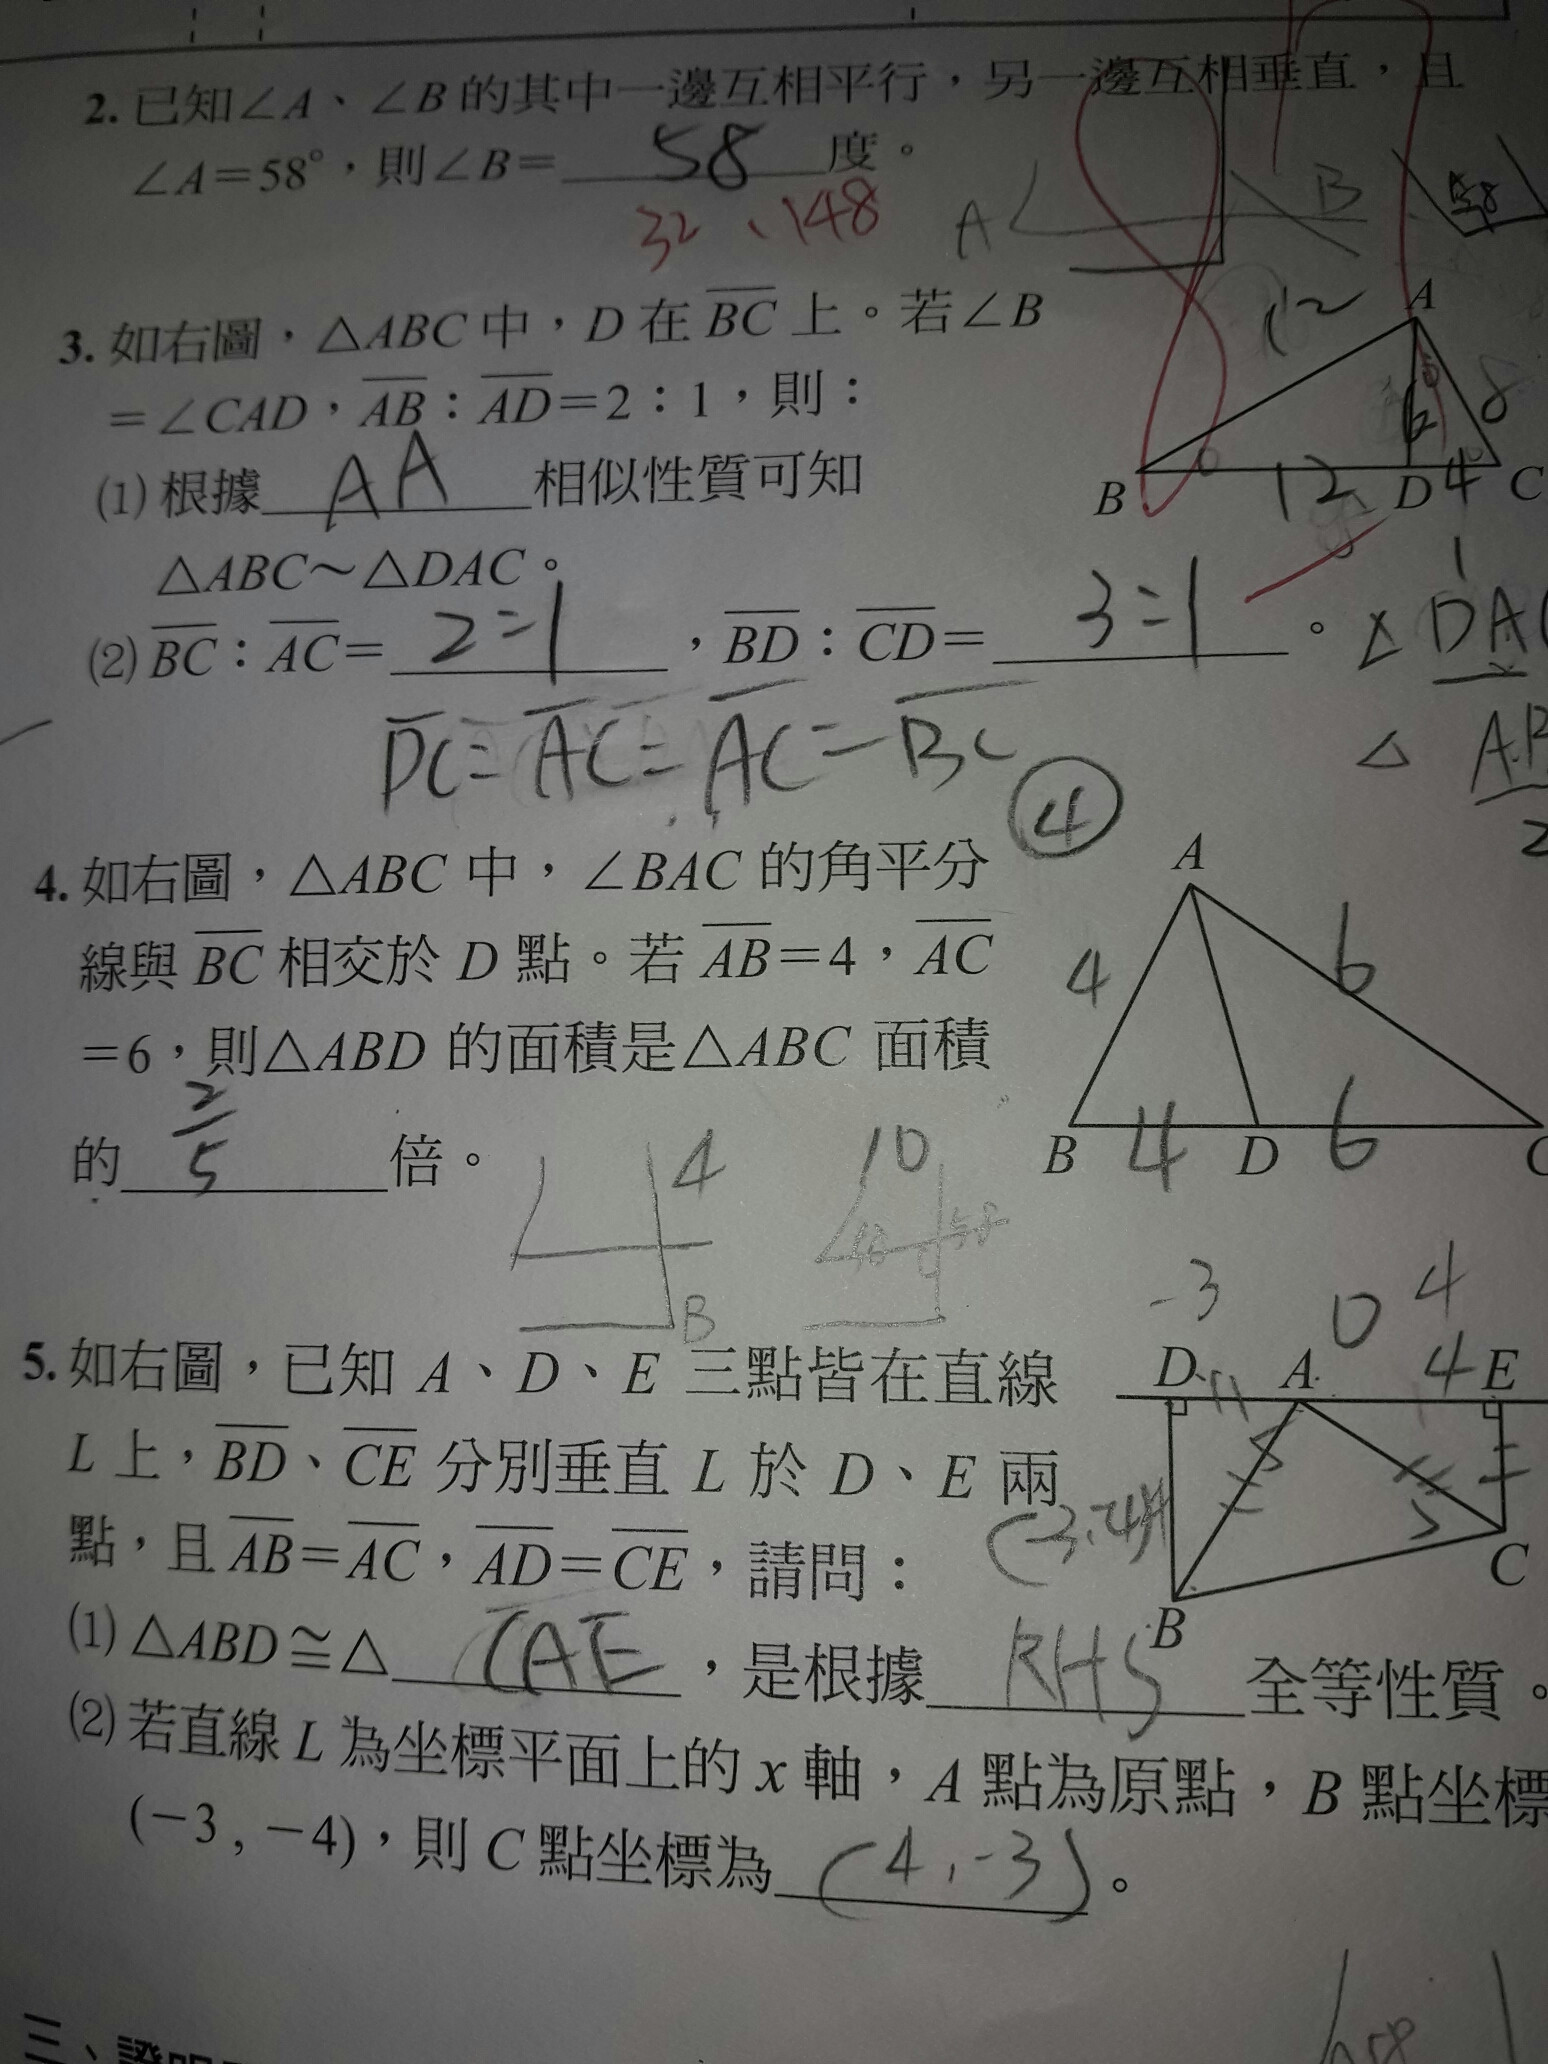 2. 已知∠A、∠B 的其中一邊互相平行，另一邊互相垂直，且
∠A=58°，則∠B= 58 度。
32、148
A
B
58
3. 如右圖，△ABC 中，D 在 BC 上。若∠B
=∠CAD，AB：AD=2：1，則：
(1) 根據 AA 相似性質可知
△ABC～△DAC。
(2) BC：AC= 2=1 ，BD：CD= 3=1 。
DC=AC=AC=BC
12
A
6
8
B
12
D
4
C
1
△ DAC
△ AB
2
④
4. 如右圖，△ABC 中，∠BAC 的角平分
線與 BC 相交於 D 點。若 AB=4，AC
=6，則△ABD 的面積是△ABC 面積
的 2/5 倍。
A
4
6
B
4
D
6
C
4
B
10
58
5. 如右圖，已知 A、D、E 三點皆在直線
L 上，BD、CE 分別垂直 L 於 D、E 兩
點，且 AB=AC，AD=CE，請問：
(1) △ABD≅△ CAE ，是根據 RHS 全等性質。
(2) 若直線 L 為坐標平面上的 x 軸，A 點為原點，B 點坐標
(−3 , −4)，則 C 點坐標為 (4,-3) 。
-3
0
4
D
A
4
E
5
5
(-3,-4)
B
C
三、證明
58